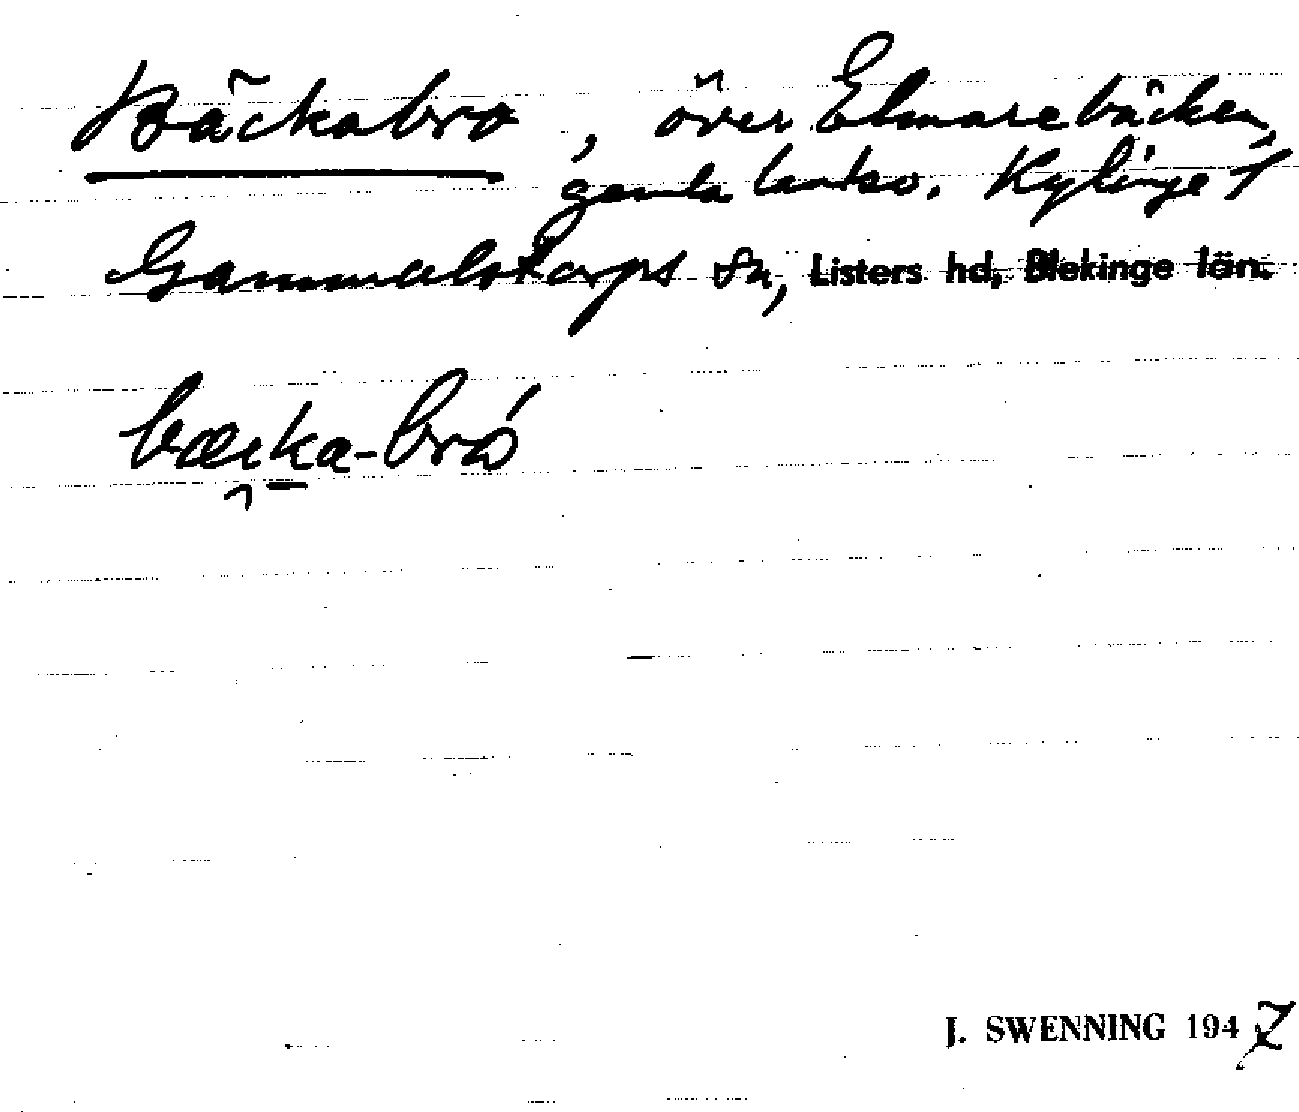 Bäckabro, över Elmarebäcken,
gamla landsv. Kylinge 1
Gammalstorps sn, Listers hd, Blekinge län.
bæcka-bró
J. SWENNING 1947